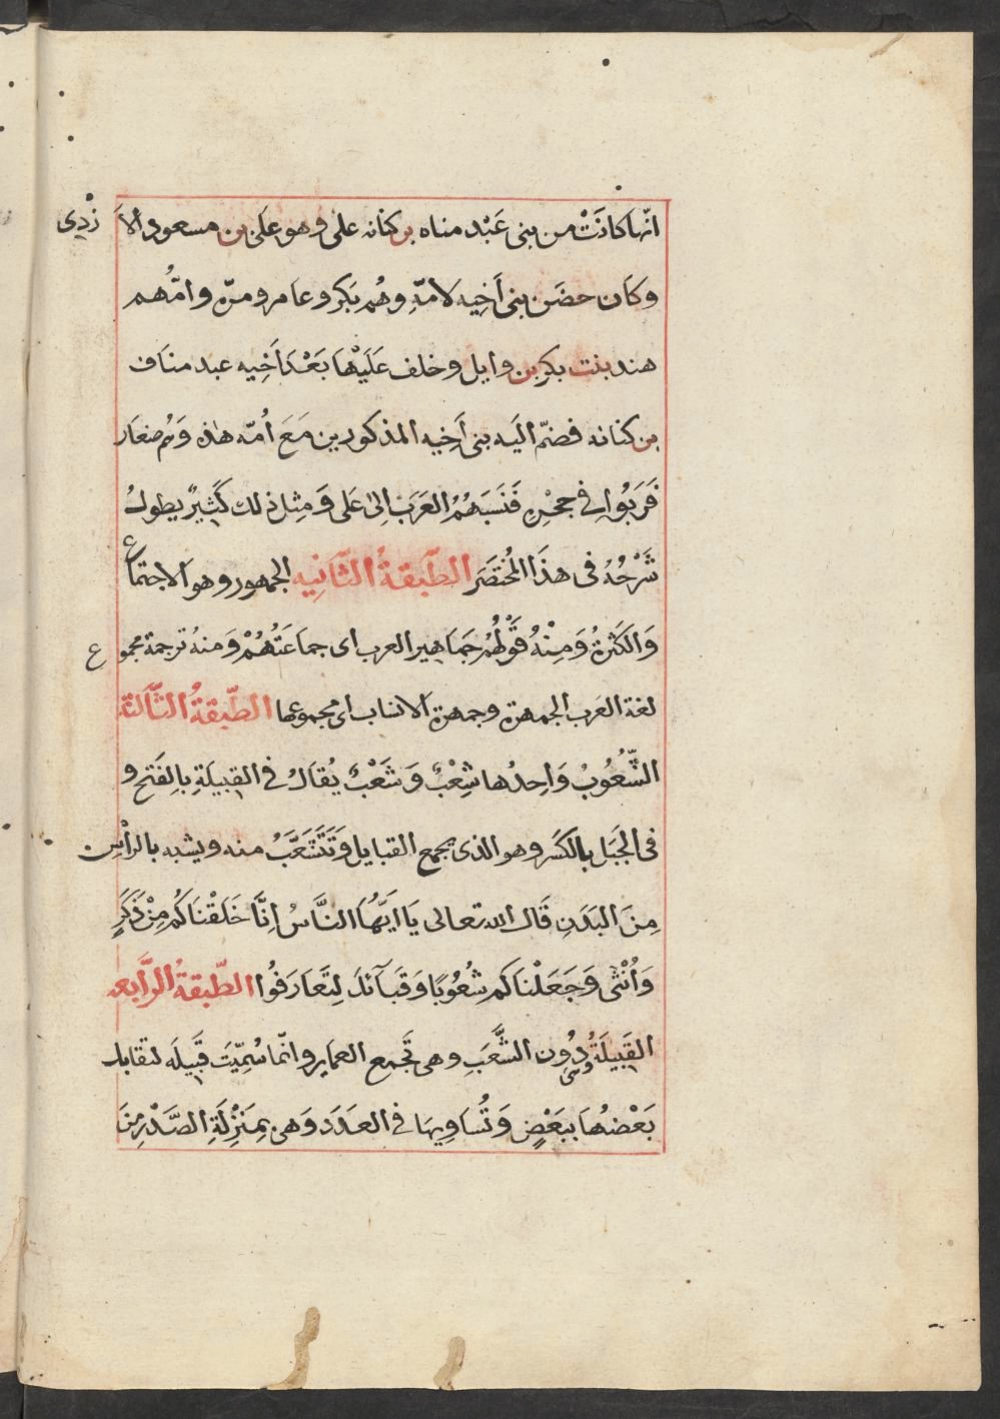 انّها كانَتْ من بنى عَبْد مناه بن كنانه على وهو عَلى بن مسعود الاَزْدِى
وكَان حضَن بنى اَخِيه لامّهِ وهُم بَكر وعامر ومرّه وامّهم
هند بنت بكر بن وايل وخلف عَلَيْهَا بَعْدَ اَخِيه عبد مناف
بن كنانه فضمّ اليَه بنى اَخِيه المذكورين مَعَ اُمّه هاذه وَهُم صغار
فَرَبَوُا فى حجْرِهِ فَنَسَبَهُمُ العَرَبْ اِلىٰ عَلى وَمِثل ذلك كَثِيرٌ يطولُ
شَرْحُهُ فى هذَا المُختصَر الطّبقةُ الثّانِيه الجمهور وهو الاجتماع
وَالكَثرةُ وَمِنْهُ قَوْلُهُمْ جمَاهير العرب اى جماعَتُهُمْ وَمنهُ ترجمة مجموع
لغة العَرب الجمهرة وجمهرة الانساب اى مجموعها الطّبقةُ الثّالثة
الشّعُوبُ وَاحِدُها شِعْبٌ وَشَعْبٌ يُقالُ فى القبيلَةِ بالِفَتح و
فى الجَبَل بالكسَر وهو الذى يجمع القبايل وَتَتَشَعَّبُ منه ويشبه بالرأسِ
مِنَ البَدَنِ قَالَ الله تعالى يَا ايّهَا النَّاسُ اِنَّا خَلَقْنَاكُم مِنْ ذَكَرٍ
وَاُنْثٰى وَجَعَلْنَاكم شُعُوبًا وَقَبَآئلَ لِتَعَارَفُوا الطّبقةُ الرّابعه
القَبِيلَةُ وهى دُون الشَّعَبِ وهى تَجمع العماير وانّما سُمِّيَتَ قَبِيلَه لتقابل
بَعْضُهَا ببَعْضٍ وَتُساوِيهَا فى العَدَد وَهى بِمَنْزِلَةِ الصَّدْرِ مِنَ